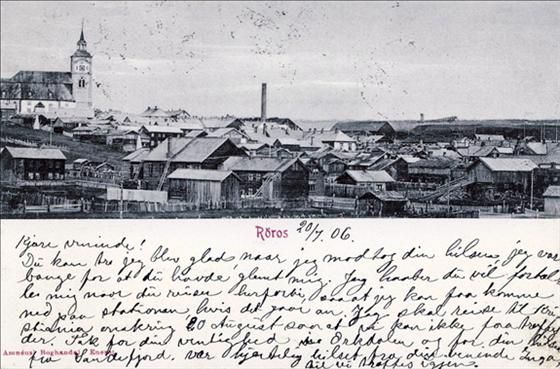 Röros 20/7. 06.
Kjære veninde!
Du kan tro jeg blev glad naar jeg modtog din hilsen, jeg var
bange for at du havde glemt mig. Jeg haaber du vil fortæl
les mig naar du reiser herforbi, saaat jeg kan faa komme
ned paa stationen hvis det gaar an. Jeg skal reise til Kri
stiania omkring 20 August saa at vi kan ikke faa træffes
der. Tak for din venlighed Orkdalen og for din hilsen
fra Sandefjord. vær hjertelig hilset fra din veninde Inga
til vi træffes igjen.
Amnéus' Boghandel Eneret